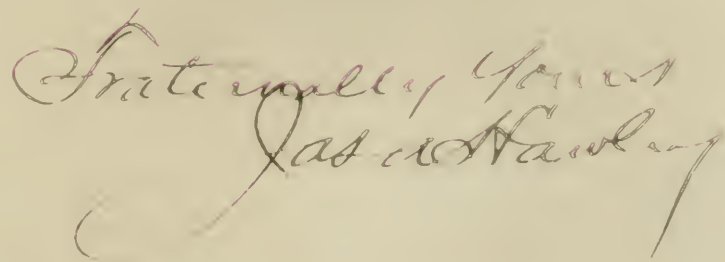 Fraternally Yours
Jas. A. Hawley